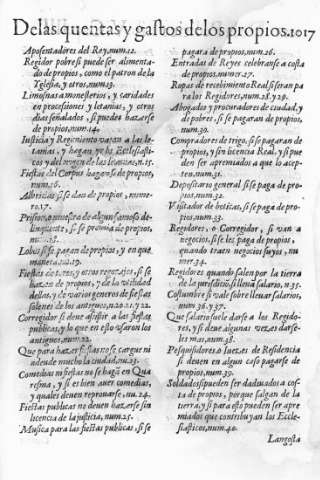 De las quentas y gastos de los propios. 1017
Aposentadores del Rey, num. 12.
Regidor pobre si puede ser alimenta-
do de propios, como el patron de la
Yglesia, y otros, num. 13.
Limosnas a monasterios, y caridades
en processiones y letanias, y otros
dias señalados, si puedẽ hazerse
de propios, num. 14.
Iusticia y Regimiento vayan a las le-
tanias, y hagan yr los Ecclesiasti-
cos, y del origen de las letanias, n. 15.
Fiestas del Corpus hagan se de propios,
num. 16.
Albricias si se dan de propios, nume-
ro. 17.
Prision, o muestra de algun famoso de-
linquente, si se premia de propios,
nu. 18.
Lobos si se pagan de propios, y en que
manera, nu. 19.
Fiestas de toros, y otros regozijos, si se
hazen de propios, y de la vtilidad
dellos, y de varios generos de fiestas
solenes de los antiguos, n. 20. 21. y 22.
Corregidor si deve assistir a las fiestas
publicas, y lo que en esto usaron los
antiguos, num. 22.
Que para hazer fiestas no se cargue ni
adeude mucho la ciudad, nu. 23.
Comedias ni fiestas no se hagã en Qua
resma, y si es bien aver comedias,
y quales deuen reprouarse, nu. 24.
Fiestas publicas no deuen hazerse sin
licencia de la justicia, num. 25.
Musica para las fiestas publicas, si se
pagara de propios, num. 26.
Entradas de Reyes celebranse a costa
de propios, numer. 27.
Ropas de recebimiento Real si seran pa
ra los Regidores, num. 28. y 29.
Abogados y procuradores de ciudad, y
de pobres, si se pagaran de propios,
num. 30.
Compradores de trigo, si se pagaran de
propios, y sin licencia Real, y si pue
den ser apremiados a que lo acep-
ten, num. 31.
Depositario general si se paga de pro-
pios, num. 32.
Visitador de boticas, si se paga de pro-
pios, num. 33.
Regidores, o Corregidor, si van a
negocios, si se les paga de propios,
quando traen negocios suyos, nu
mer. 34.
Regidores quando salen por la tierra
de la juredicciõ, si lleuã salario, n. 35.
Costumbre si vale sobre lleuar salarios,
num. 36. y 37.
Que salario se le darse a los Regido-
res, y si deue algunas vezes darse-
les mas, num. 38.
Pesquisidores, o Iuez, es de Residencia
si deuen en algun caso pagarse de
propios, num. 39.
Soldados si pueden ser conduzidos a cos-
ta de propios, porque salgan de la
tierra, y si para esto pueden ser apre
miados que contribuyan los Eccle-
siasticos, num. 40.
Langosta